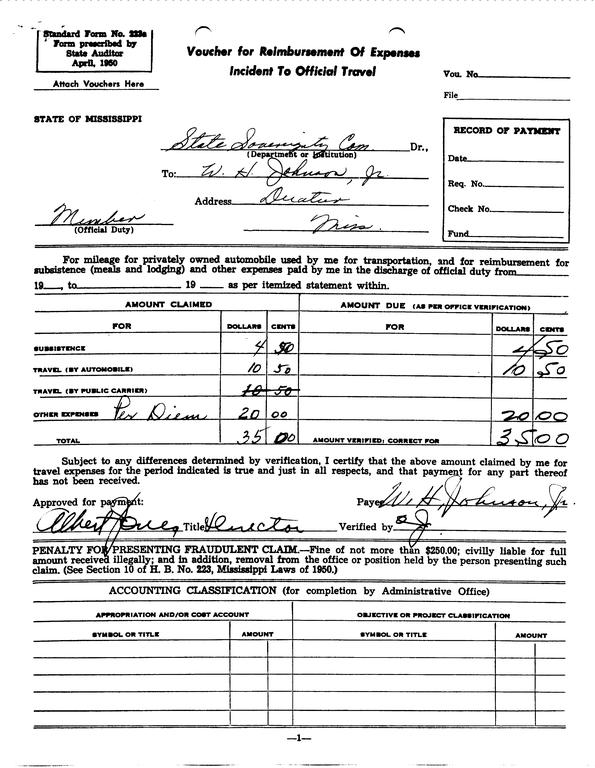 Standard Form No. 223a
Form prescribed by
State Auditor
April, 1950
Attach Vouchers Here
Voucher for Reimbursement Of Expenses
Incident To Official Travel
Vou. No.
File
STATE OF MISSISSIPPI
State Sovereignty Com Dr.,
(Department or Institution)
To: W. H. Johnson, Jr.
Address Decatur
Miss.
Member
(Official Duty)
RECORD OF PAYMENT
Date
Req. No.
Check No.
Fund
For mileage for privately owned automobile used by me for transportation, and for reimbursement for
subsistence (meals and lodging) and other expenses paid by me in the discharge of official duty from
19___, to 19 ___ as per itemized statement within.
AMOUNT CLAIMED AMOUNT DUE (AS PER OFFICE VERIFICATION)
FOR DOLLARS CENTS FOR DOLLARS CENTS
SUBSISTENCE 4 50 4 50
TRAVEL (BY AUTOMOBILE) 10 50 10 50
TRAVEL (BY PUBLIC CARRIER) 10 50
OTHER EXPENSES Per Diem 20 00 20 00
TOTAL 35 00 AMOUNT VERIFIED; CORRECT FOR 35 00
Subject to any differences determined by verification, I certify that the above amount claimed by me for
travel expenses for the period indicated is true and just in all respects, and that payment for any part thereof
has not been received.
Approved for payment: Payee W. H. Johnson, Jr.
Albert Jones Title Director Verified by
PENALTY FOR PRESENTING FRAUDULENT CLAIM.—Fine of not more than $250.00; civilly liable for full
amount received illegally; and in addition, removal from the office or position held by the person presenting such
claim. (See Section 10 of H. B. No. 223, Mississippi Laws of 1950.)
ACCOUNTING CLASSIFICATION (for completion by Administrative Office)
APPROPRIATION AND/OR COST ACCOUNT OBJECTIVE OR PROJECT CLASSIFICATION
SYMBOL OR TITLE AMOUNT SYMBOL OR TITLE AMOUNT
—1—